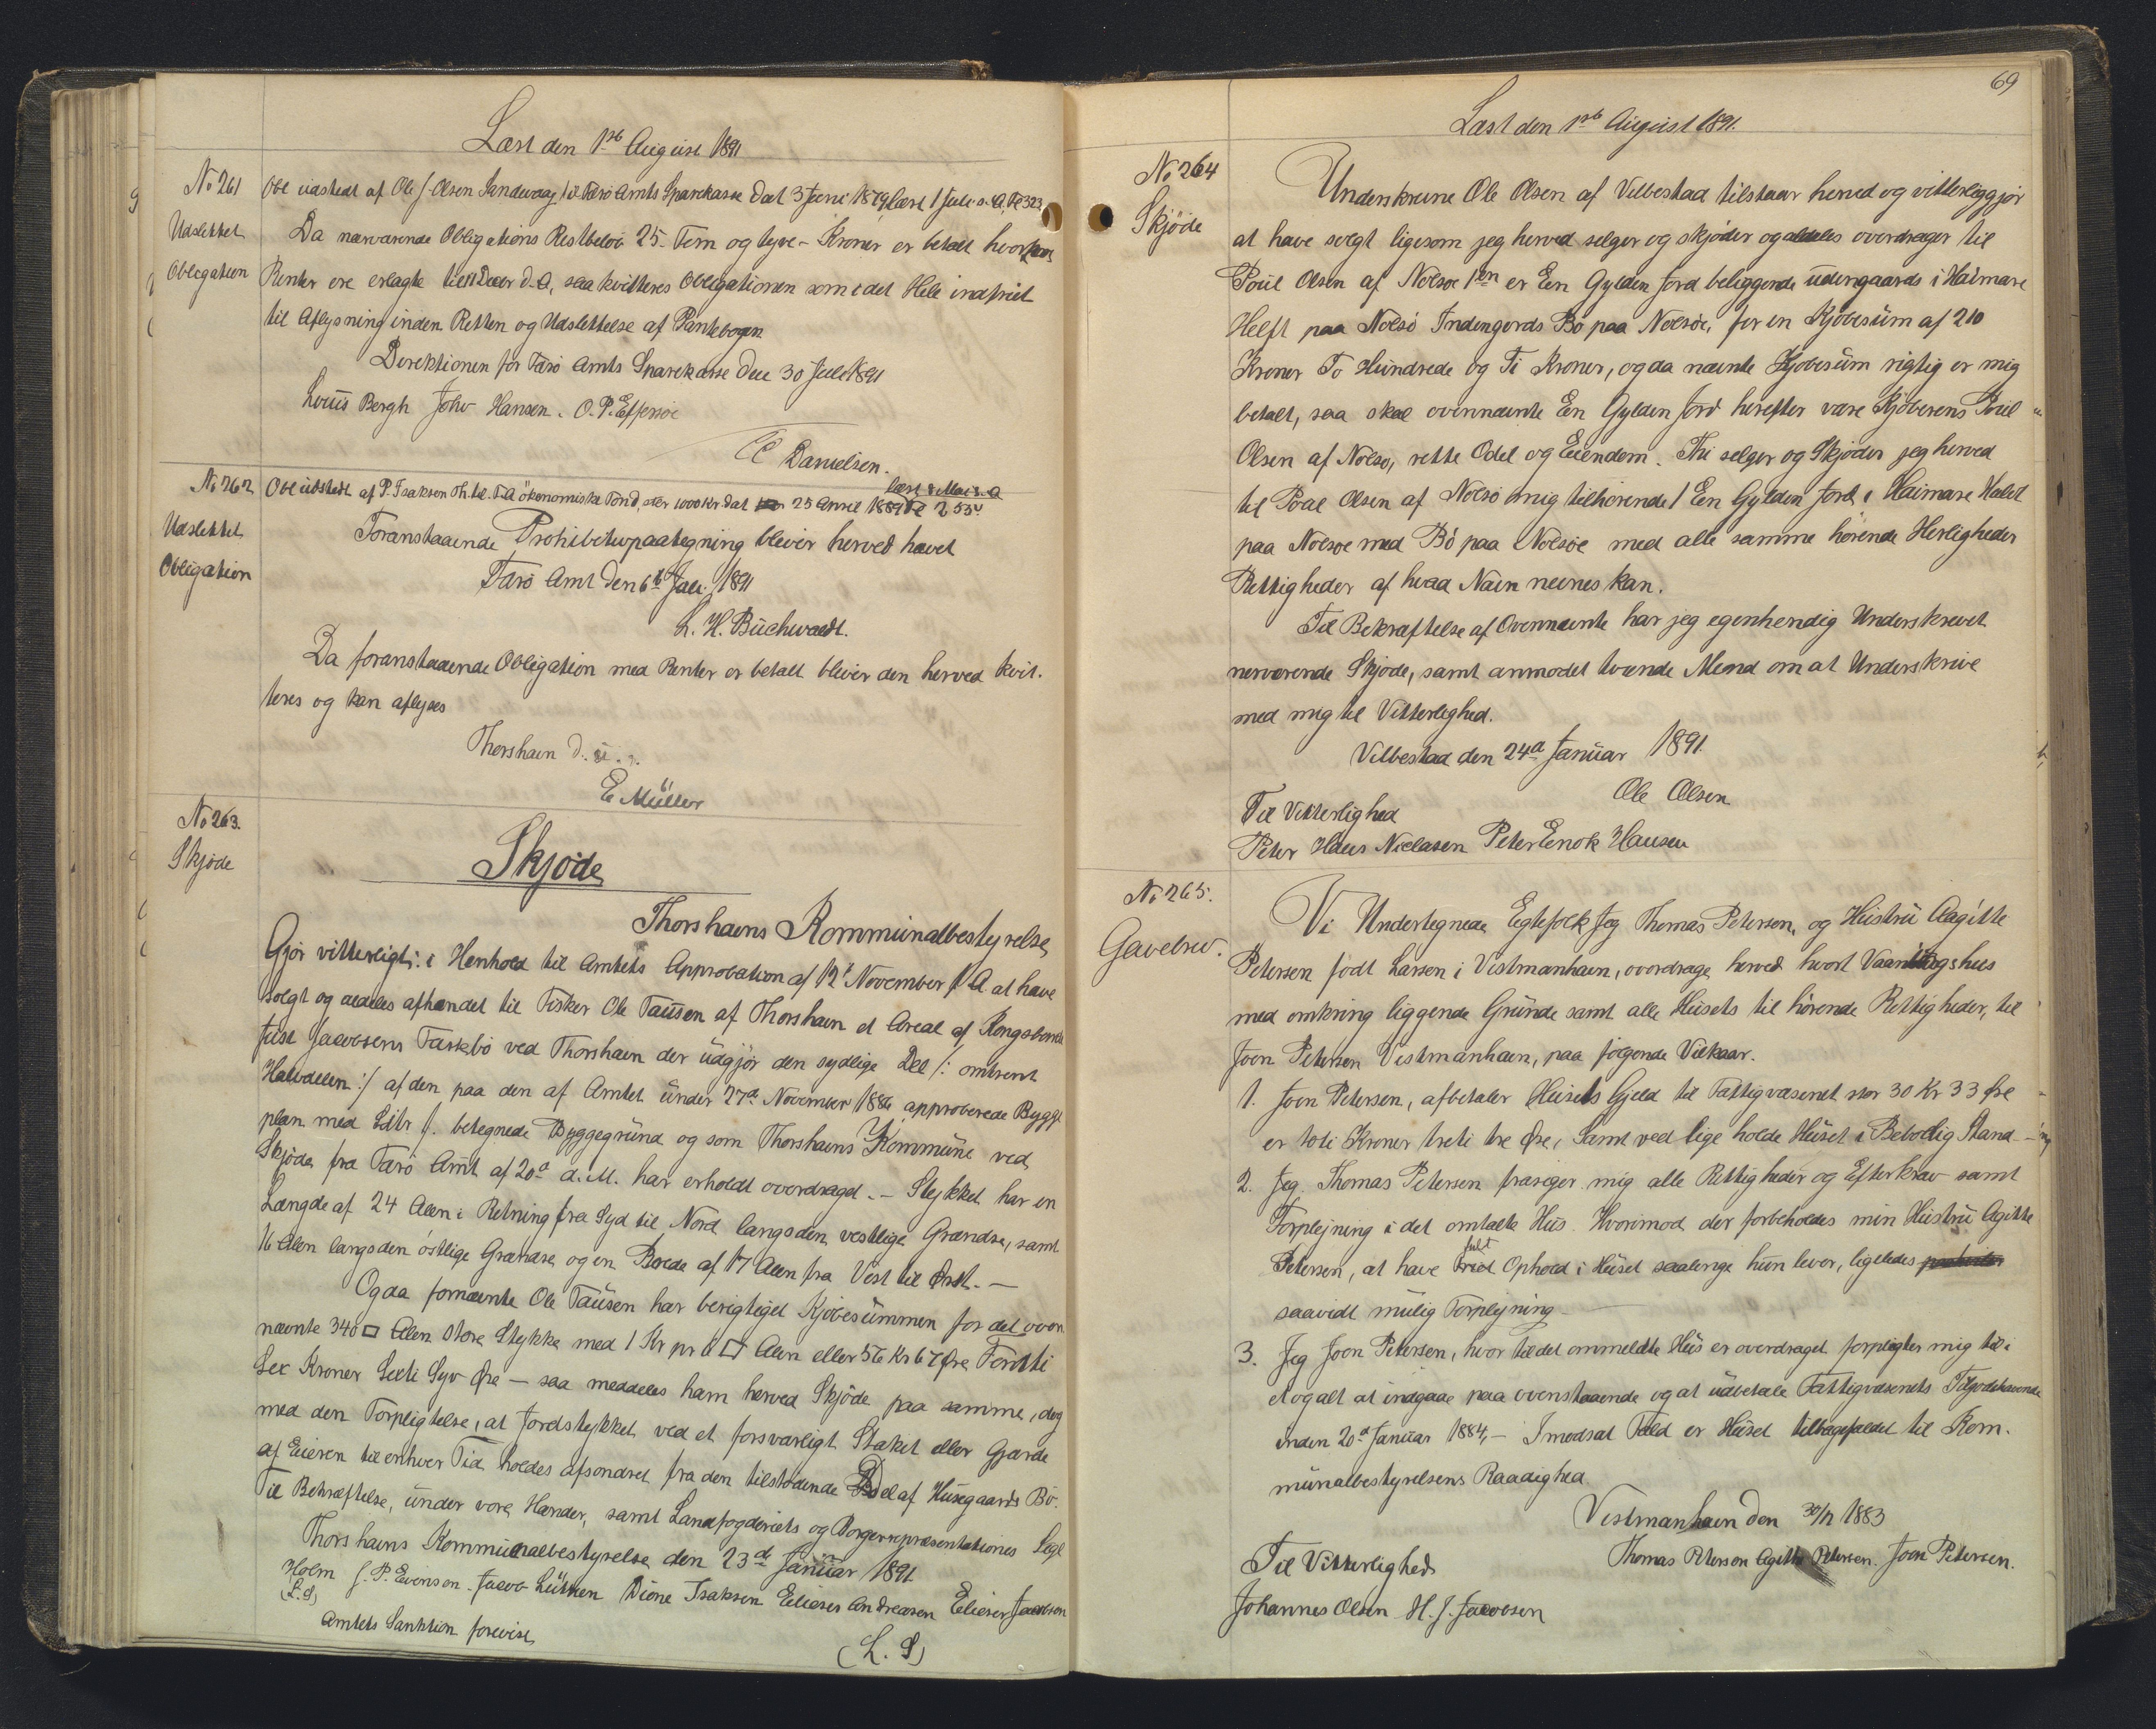 Læst den 1ste August 1891
No 261
Udslettet
Obligation
Obl udstedt af Ole J. Olsen Sandevaag til Færø Amts Sparekasse Dat 3 Juni 1879 læst 1 Juli s. A, Fo 323
Da nærværende Obligations Restbeløb 25 - Fem og tyve - Kroner er betalt hvorhos
Renter ere erlagte til d.A, saa kvitteres Obligationen som i det Hele indfriet
til Aflysning inden Retten og Udslettelse af Pantebogen
Direktionen for Færø Amts Sparekasse den 30 Juli 1891
Louis Bergh Johs Hansen. O. P. Effersøe
E Danielsen.
No 262
Udslettet
Obligation
læst 8 Mai s. A
Obl udstedt af P. Isaksen Th. til F. A økonomiske Fond, stor 1000 Kr. Dat 25 April 1889 Fo 255
Foranstaaende Prohibitivpaategning bliver herved hævet
Færø Amt den 6te Juli 1891
L. H. Buchwaldt.
Da foranstaaende Obligation med Renter er betalt bliver den herved kvit-
teres og kan aflyses
Thorshavn d. u. s.
E Müller
No 263.
Skjøde
Skjøde
Thorshavns Kommunalbestyrelse
Gjør vitterligt: i Henhold til Amtets Approbation af 12te November f. A. at have
solgt og aldeles afhændet til Fisker Ole Tausen af Thorshavn et Areal af Kongsbonde
Just Jacobsens Fæstebø ved Thorshavn der udgjør den sydlige Del /: omtrent
Halvdelen :/ af den paa den af Amtet under 27de November 1886 approberede Bygge
plan med Litr f. betegnede Byggegrund og som Thorshavns Kommune ved
Skjøde fra Færø Amt af 20de d. M. har erholdt overdraget. - Stykket har en
Længde af 24 Alen i Retning fra Syd til Nord langs den vestlige Grændse, samt
16 Alen langs den østlige Grændse og en Brede af 17 Alen fra Vest til Øst. -
Og da fornævnte Ole Tausen har berigtiget Kjøbesummen for det oven
nævnte 340 □ Alen store Stykke med 1 Kr pr 6 □ Alen eller 56 Kr 67 Øre Femti
Sex Kroner Sexti Syv Øre - saa meddeles ham herved Skjøde paa samme, dog
med den Forpligtelse, at Jordstykket ved et forsvarligt Staket eller Gjærde
af Eieren til enhver Tid holdes afsondret fra den tilstødende Del af Husegaards Bø.
Til Bekræftelse, under vore Hænder, samt Landfogderiets og Borgerrepræsentationes Segl
Thorshavns Kommunalbestyrelse den 23de Januar 1891
Holm J. P. Evensen. Jacob Lützen Dione Isaksen Elieser Andreasen Elieser Jacobsen
(L. S)
Amtets Sanktion forevist
(L. S)
69
Læst den 1ste August 1891.
No 264
Skjøde
Underskrevne Ole Olsen af Velbestad tilstaar herved og vitterliggjør
at have solgt ligesom jeg herved selger og skjøder og aldeles overdrager til
Poul Olsen af Nolsøe 1en er Een Gylden Jord beliggende udengaards i Haimare
Helft paa Nolsø Indengords Bø paa Nolsøe, for en Kjøbesum af 210
Kroner To Hundrede og Ti Kroner, og da nævnte Kjøbesum rigtig er mig
betalt, saa skal ovennævnte Een Gylden Jord herefter være Kjøberens Poul
Olsen af Nolsø, rette Odel og Eiendom. Thi selger og Skjøder jeg herved
til Poul Olsen af Nolsø mig tilhørende 1 Een Gylden Jord i Haimare Halvt
paa Nolsøe med Bø paa Nolsøe med alle samme hørende Herligheder
Rettigheder af hvad Navn nevnes kan.
Til Bekræftelse af Ovennævnte har jeg egenhendig Underskrevet
nerværende Skjøde, samt anmodet tvende Mend om at Underskrive
med mig til Vitterlighed.
Velbestad den 24de Januar 1891.
Ole Olsen
Til Vitterlighed
Peter Hans Niclasen Peter Enok Hansen
No 265.
Gavebrev.
Vi Undertegnede Egtefolk Jeg Thomas Petersen, og Hustru Aagitte
Petersen født Larsen i Vestmanhavn, overdrage herved hvort Vaaningshus
med omkring liggende Grunde samt alle Husets til hørende Rettigheder, til
Joen Petersen Vestmanhavn, paa følgende Vilkaar.
1. Joen Petersen, afbetaler Husets Gjeld til Fattigvæsenet stor 30 Kr 33 Øre
er toti Kroner treti tre Øre, Samt ved lige holde Huset i Beboelig Stand -
2. Jeg Thomas Petersen frasiger mig alle Rettigheder og Efterkrav samt
Forplejning i det omtalte Hus. Hvorimod der forbeholdes min Hustru Agitte
Petersen, at have frit Ophold i Huset saalenge hun lever, ligeledes
saavidt mulig Forplejning -
3. Jeg Joen Petersen, hvor til det ommeldte Hus er overdraget forpligter mig til i
et og alt at indgaae paa ovenstaaende og at udbetale Fattigvæsenets Tilgodehavende
inden 20de Januar 1884, - I modsat Fald er Huset tilbagefaldet til Kom-
munalbestyrelsens Raadighed
Vestmanhavn den 30/12 1883
Thomas Petersen Agitte Petersen. Joen Petersen.
Til Vitterlighed
Johannes Olsen H. J. Jacobsen